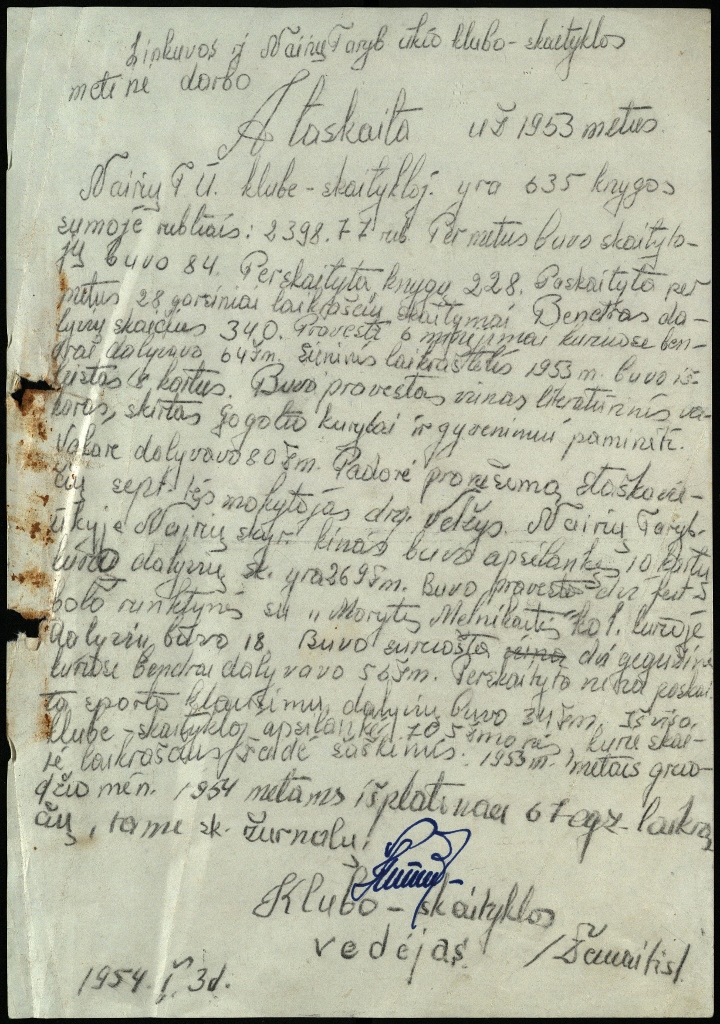 Linkuvos rj Nairių Taryb ūkio klubo-skaityklos
metinė darbo
Ataskaita už 1953 metus.
Nairių T Ū. klube-skaitykloj. yra 635 knygos
sumoje rubliais: 2398.77 rub. Per metus buvo skaityto-
jų buvo 84. Perskaityta knygų 228. Paskaityta per
metus 28 garsiniai laikraščių skaitymai. Bendras da-
lyvių skaičius 340. Pravesta 6 kuriuose ben-
drai dalyvavo 64 žm. Sieninis laikraštėlis 1953 m. buvo iš-
leistas kartus. Buvo pravestas vienas literatūrinis va-
karas, skirtas Gogolio kurybai ir gyvenimui paminėti.
Vakare dalyvavo 80 žm. Padarė pranešimą
čių sept. -tės mokytojas drg. Velžys. Nairių Taryb.
ūkyje Nairių skyr. kinas buvo apsilankęs 10 kartų
kurio dalyvių sk. yra 2695 m. Buvo pravesta dvi fut-
bolo runktynės su "Marytės Melnikaitės kol. kurioje
dalyvių buvo 18. Buvo suruošta dvi gegužinė
kuriose bendrai dalyvavo 56 žm. Perskaityta
ta sporto klausimu, dalyvių buvo 34 žm. Iš viso
klube-skaitykloj apsilankė 705 žmonės, kurie skai-
tė laikraščius, žaidė šaškėmis. 1953 m. metais gruo-
džio mėn. 1954 metams išplatinau 67 egz. laikraš
čių, tame sk. žurnalų.
Klubo-skaityklos
vedėjas /Žemaitis/.
1954. I. 3 d.